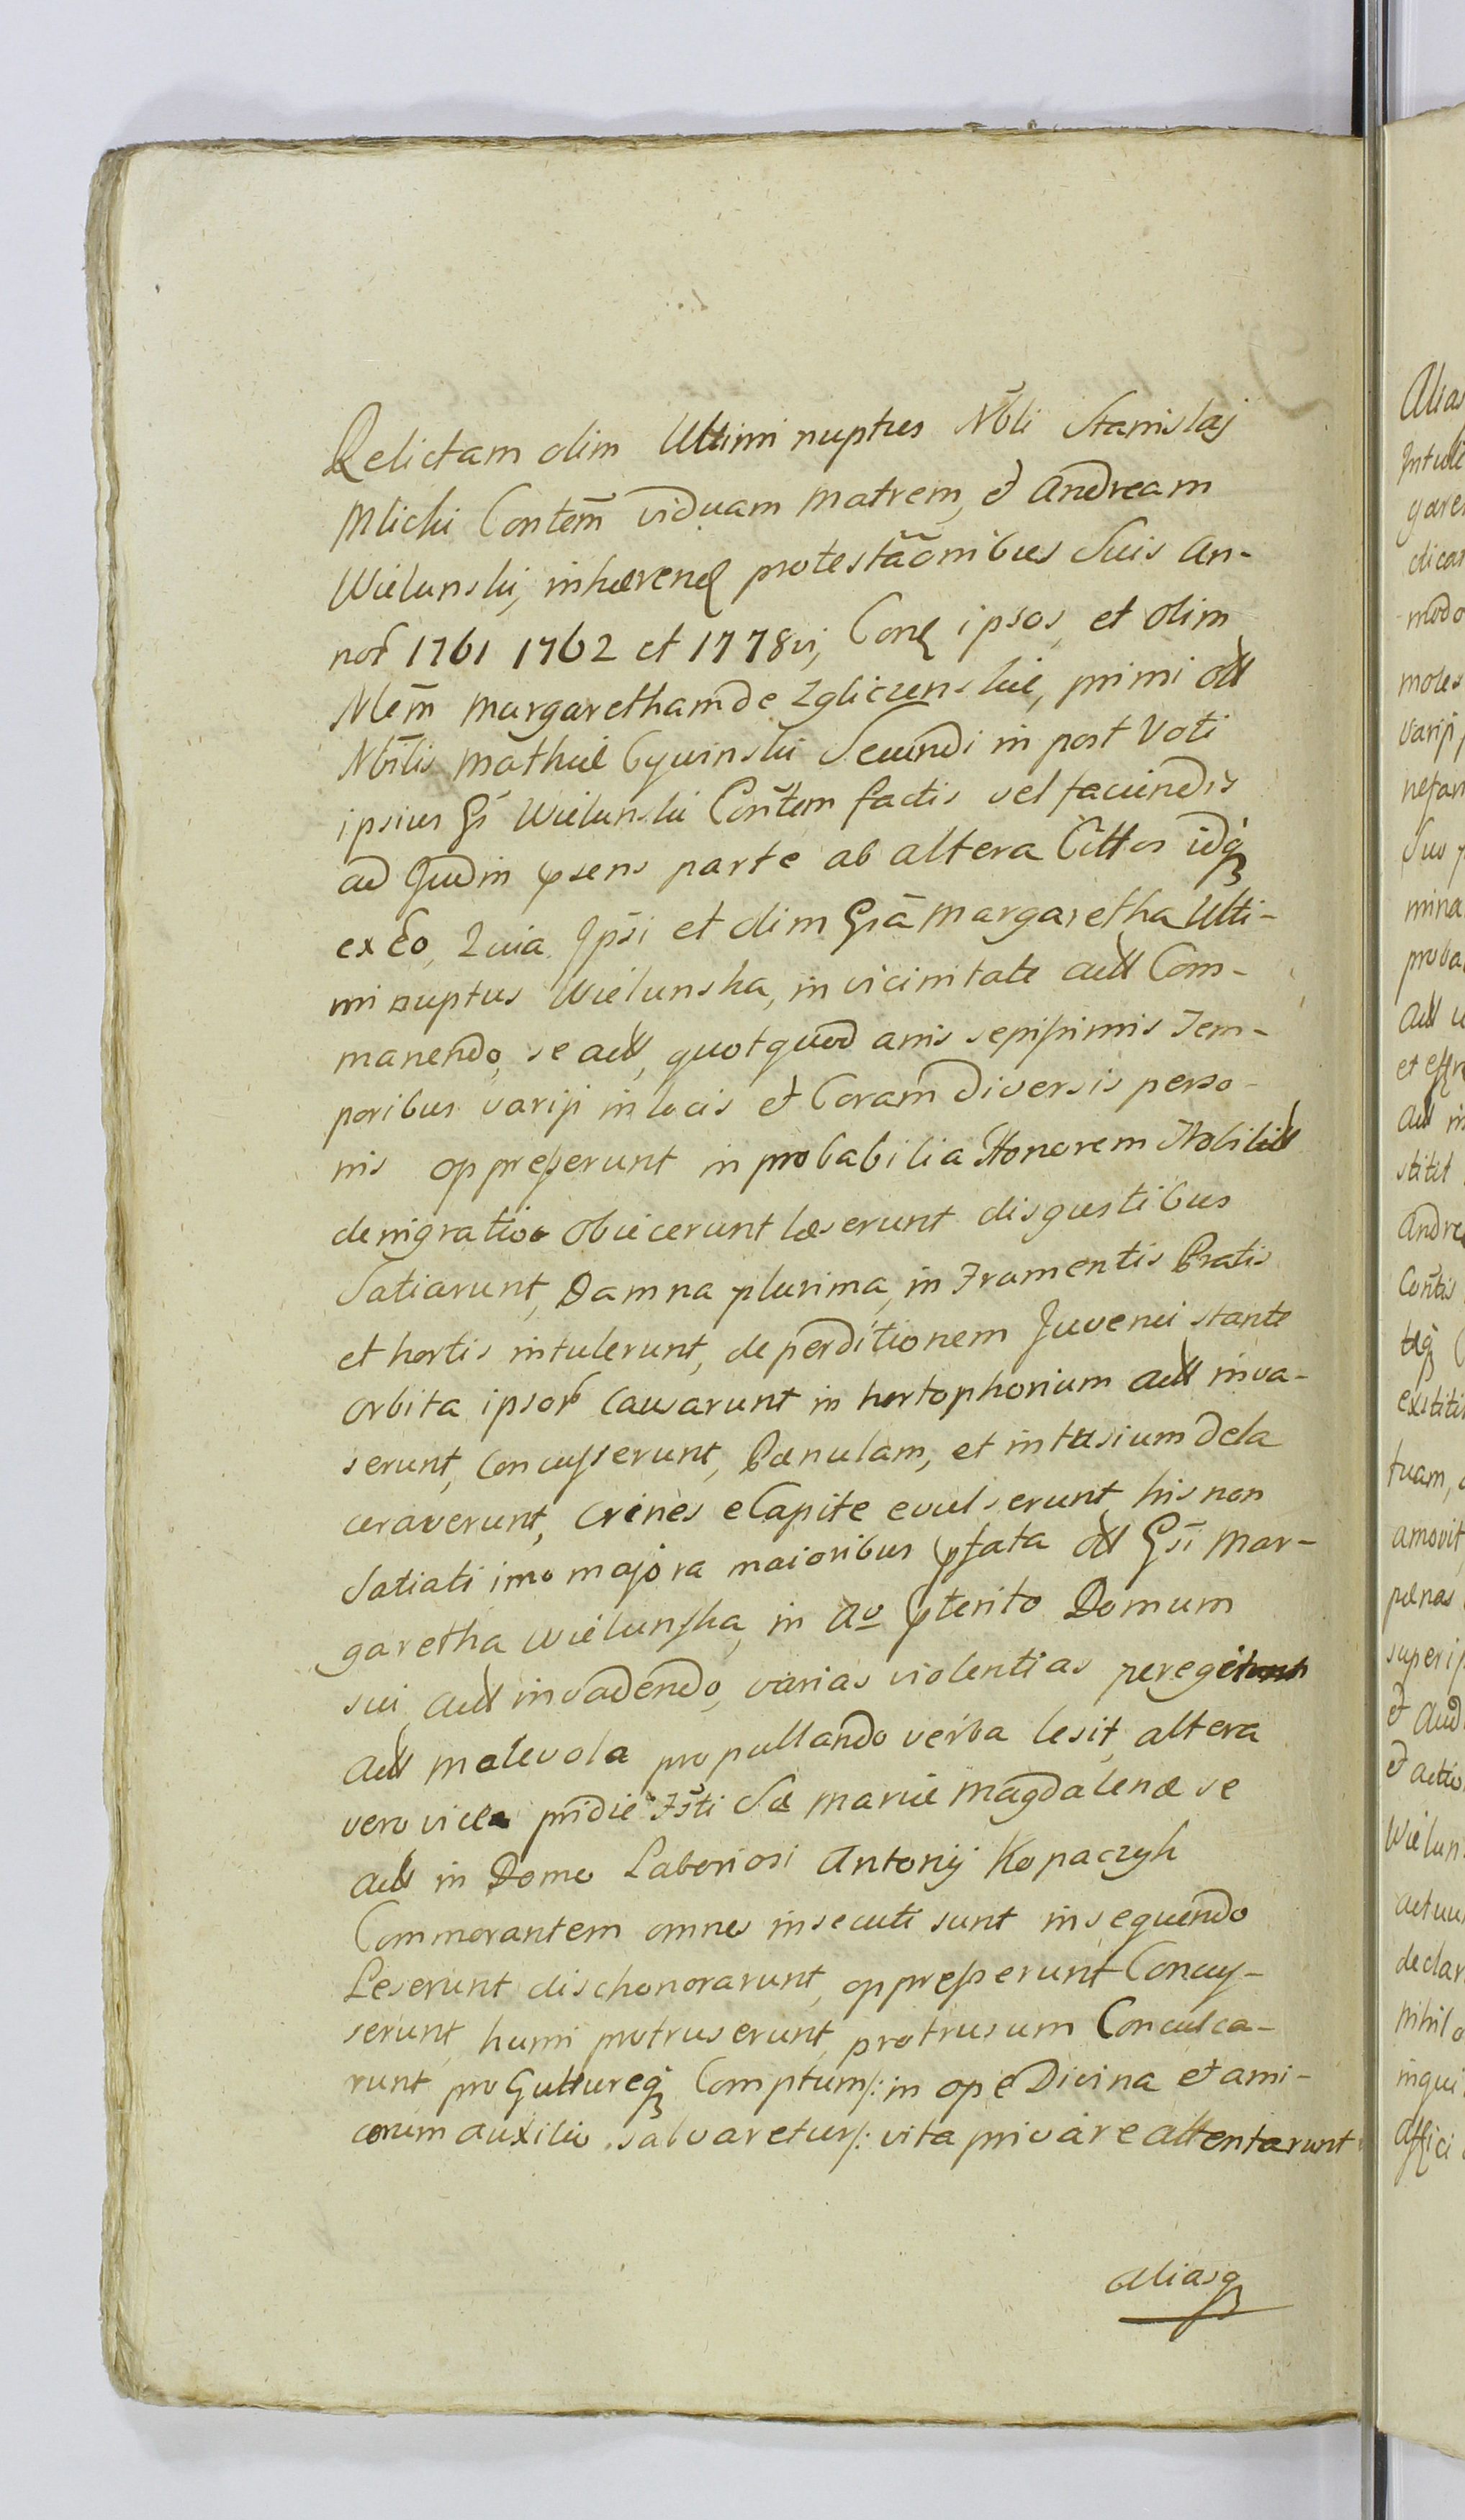 Relictam olim Ultimi nuptus Nbli Stanislaj
Mlicki Contem viduam Matrem, et Andream
Wielunski, inhærend protestaonibus Suis an-
nor 1761 1762 et 1778vi, Con ipsos, et olim
Nlem Margaretham de Zgliczenskie, primi
Nbilis Mathie Cywinski Secundi in post Voti
ipsius Gi Wielunski Contem factis vel faciendis
ad Judm psens parte ab altera Cittos idq
ex Eo, Quia Ipsi et olim Gsa Margaretha Ulti-
mi nuptus Wielunska, in vicinitate att Com-
manendo, se att, quotquod anis sepissimis Tem-
poribus varijs in locis et Coram diversis perso-
nis oppresserunt in probabilia Honorem Nobilit
denigratio obiicerunt læserunt disgustibus
Satiarunt, Damna plurima, in Framentis Pratis
et hortis intulerunt, deperditionem Juvenci stante
orbita ipsor causarunt in hortophorium att inva-
serunt, concusserunt, Pænulam, et intusium dela
ceraverunt, crines e Capite evulserunt, his non
Satiati imo majora maioribus pfata Gsi Mar-
garetha Wielunska, in Ao pterito Domum
sui att invadendo, varias violentias peregit
att malevola propullando verba lesit, altera
vero vice pridie Fsti Sæ Mariæ Magdalenæ se
att in Domo Laboriosi Antonij Kopaczyk
Commorantem omnes insecuti sunt insequendo
Leserunt dischonorarunt, oppresserunt Concus-
serunt, humi protruserunt, protrusum Conculca-
runt pro Gutture q Comptum /: in ope Divina et ami-
corum auxilio salvaretur /: vita privare attentarunt
aliasq
Alias
Intuli
dicar
modo
moles
varijs
nefan
Suo p
mina
proba
att
att in
stitit
Andre
Contis
exstiti
tuam,
amovit,
pœnas
super ip
et Aud
et actio
Wielun
actuu
declar
nihilo
inqui
affici